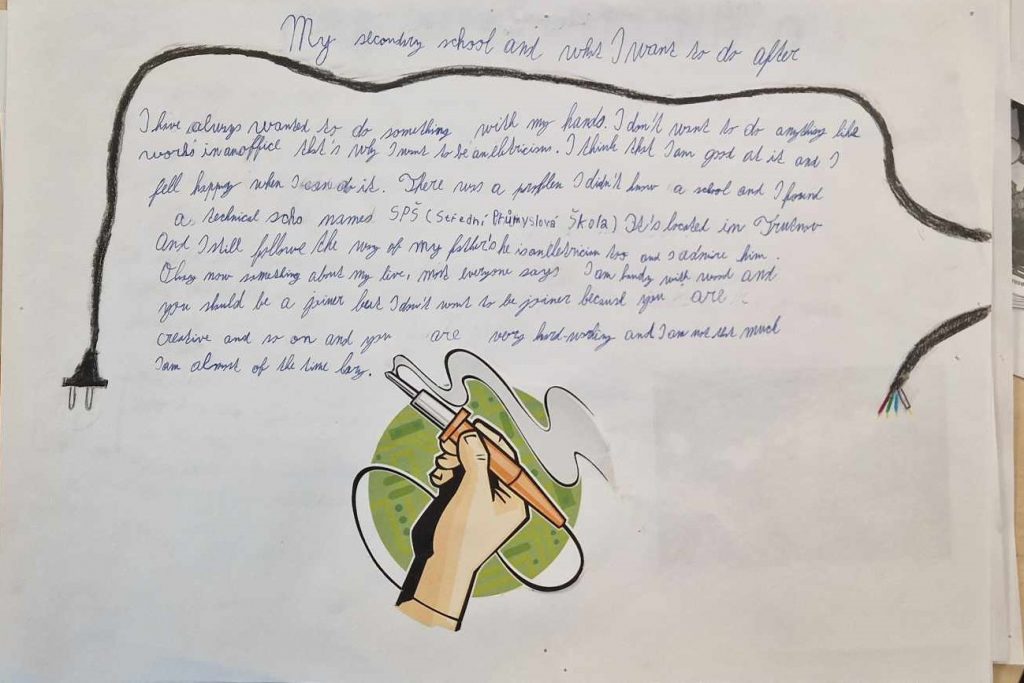 My secondary school and what I want to do after
I have always wanted to do something with my hands. I don't want to do anything like
works in an office that's why I want to be an eletricians. I think that I am good at it and I
fell happy when I can do it. There was a problem I didn't know a school and I found
a technical scho names SPŠ (Střední Průmyslová Škola) It's located in Trutnov
And I still followe the way of my father's he is an eletrician too and I admire him.
Okay now something about my live, most everyone says I am handy with wood and
you should be a joiner but I don't want to be joiner because you are
creative and so on and you are very hard-working and I am not that much
I am almost of the time lazy.